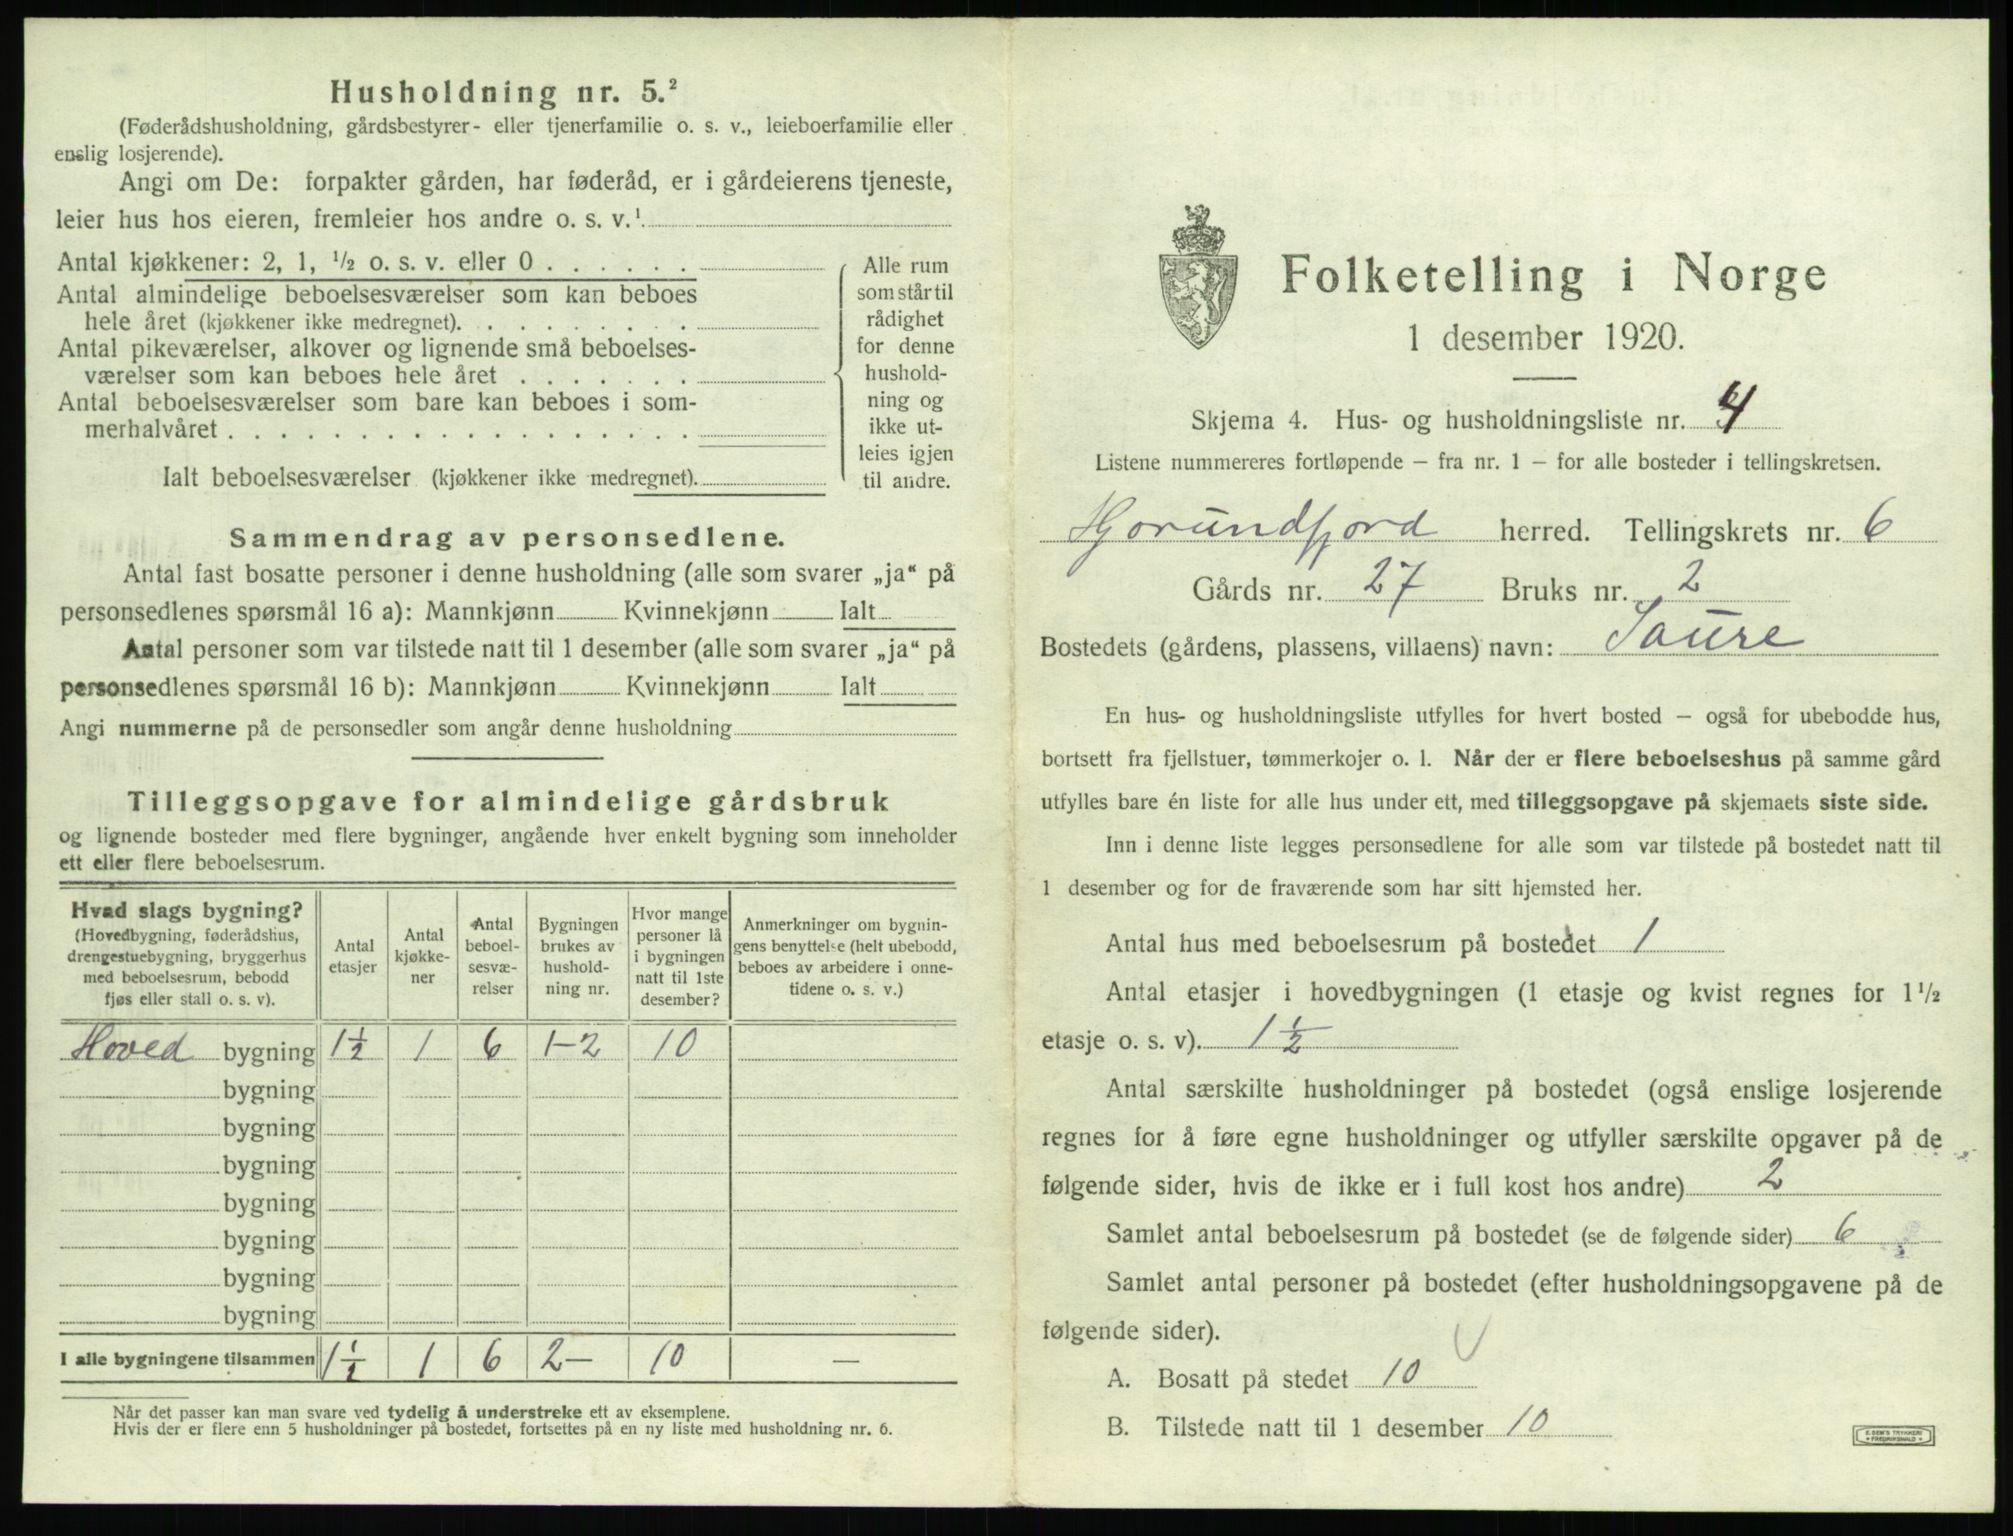 Husholdning nr. 5.²
(Føderådshusholdning, gårdsbestyrer- eller tjenerfamilie o. s. v., leieboerfamilie eller
enslig losjerende).
Angi om De: forpakter gården, har føderåd, er i gårdeierens tjeneste,
leier hus hos eieren, fremleier hos andre o. s. v.¹
Antal kjøkkener: 2, 1, ½ o. s. v. eller 0 . . . . . .
Antal almindelige beboelsesværelser som kan beboes
hele året (kjøkkener ikke medregnet). . . . . . . . .
Antal pikeværelser, alkover og lignende små beboelses-
værelser som kan beboes hele året . . . . . . .
Antal beboelsesværelser som bare kan beboes i som-
merhalvåret . . . . . . . . . . . . . . . . . .
Ialt beboelsesværelser (kjøkkener ikke medregnet).
Alle rum
som står til
rådighet
for denne
hushold-
ning og
ikke ut-
leies igjen
til andre.
Sammendrag av personsedlene.
Antal fast bosatte personer i denne husholdning (alle som svarer „ja“ på
personsedlenes spørsmål 16 a): Mannkjønn Kvinnekjønn Ialt
Antal personer som var tilstede natt til 1 desember (alle som svarer „ja“ på
personsedlenes spørsmål 16 b): Mannkjønn Kvinnekjønn Ialt
Angi nummerne på de personsedler som angår denne husholdning
Tilleggsopgave for almindelige gårdsbruk
og lignende bosteder med flere bygninger, angående hver enkelt bygning som inneholder
ett eller flere beboelsesrum.
Hvad slags bygning?
(Hovedbygning, føderådshus,
drengestuebygning, bryggerhus
med beboelsesrum, bebodd
fjøs eller stall o. s. v).
Antal
etasjer
Antal
kjøkke-
ner
Antal
beboel-
sesvæ-
relser
Bygningen
brukes av
hushold-
ning nr.
Hvor mange
personer lå
i bygningen
natt til 1ste
desember?
Anmerkninger om bygnin-
gens benyttelse (helt ubebodd,
beboes av arbeidere i onne-
tidene o. s. v.)
Hoved bygning 1½ 1 6 1-2 10
bygning
bygning
bygning
bygning
bygning
bygning
bygning
I alle bygningene tilsammen 1½ 1 6 2- 10 —
Når det passer kan man svare ved tydelig å understreke ett av eksemplene.
Hvis der er flere enn 5 husholdninger på bostedet, fortsettes på en ny liste med husholdning nr. 6.
Folketelling i Norge
1 desember 1920.
Skjema 4. Hus- og husholdningsliste nr. 4
Listene nummereres fortløpende – fra nr. 1 – for alle bosteder i tellingskretsen.
Hjorundfjord herred. Tellingskrets nr. 6
Gårds nr. 27 Bruks nr. 2
Bostedets (gårdens, plassens, villaens) navn: Saure
En hus- og husholdningsliste utfylles for hvert bosted – også for ubebodde hus,
bortsett fra fjellstuer, tømmerkojer o. l. Når der er flere beboelseshus på samme gård
utfylles bare én liste for alle hus under ett, med tilleggsopgave på skjemaets siste side.
Inn i denne liste legges personsedlene for alle som var tilstede på bostedet natt til
1 desember og for de fraværende som har sitt hjemsted her.
Antal hus med beboelsesrum på bostedet 1
Antal etasjer i hovedbygningen (1 etasje og kvist regnes for 1½
etasje o. s. v). 1½
Antal særskilte husholdninger på bostedet (også enslige losjerende
regnes for å føre egne husholdninger og utfyller særskilte opgaver på de
følgende sider, hvis de ikke er i full kost hos andre) 2
Samlet antal beboelsesrum på bostedet (se de følgende sider) 6
Samlet antal personer på bostedet (efter husholdningsopgavene på de
følgende sider).
A. Bosatt på stedet 10
B. Tilstede natt til 1 desember 10